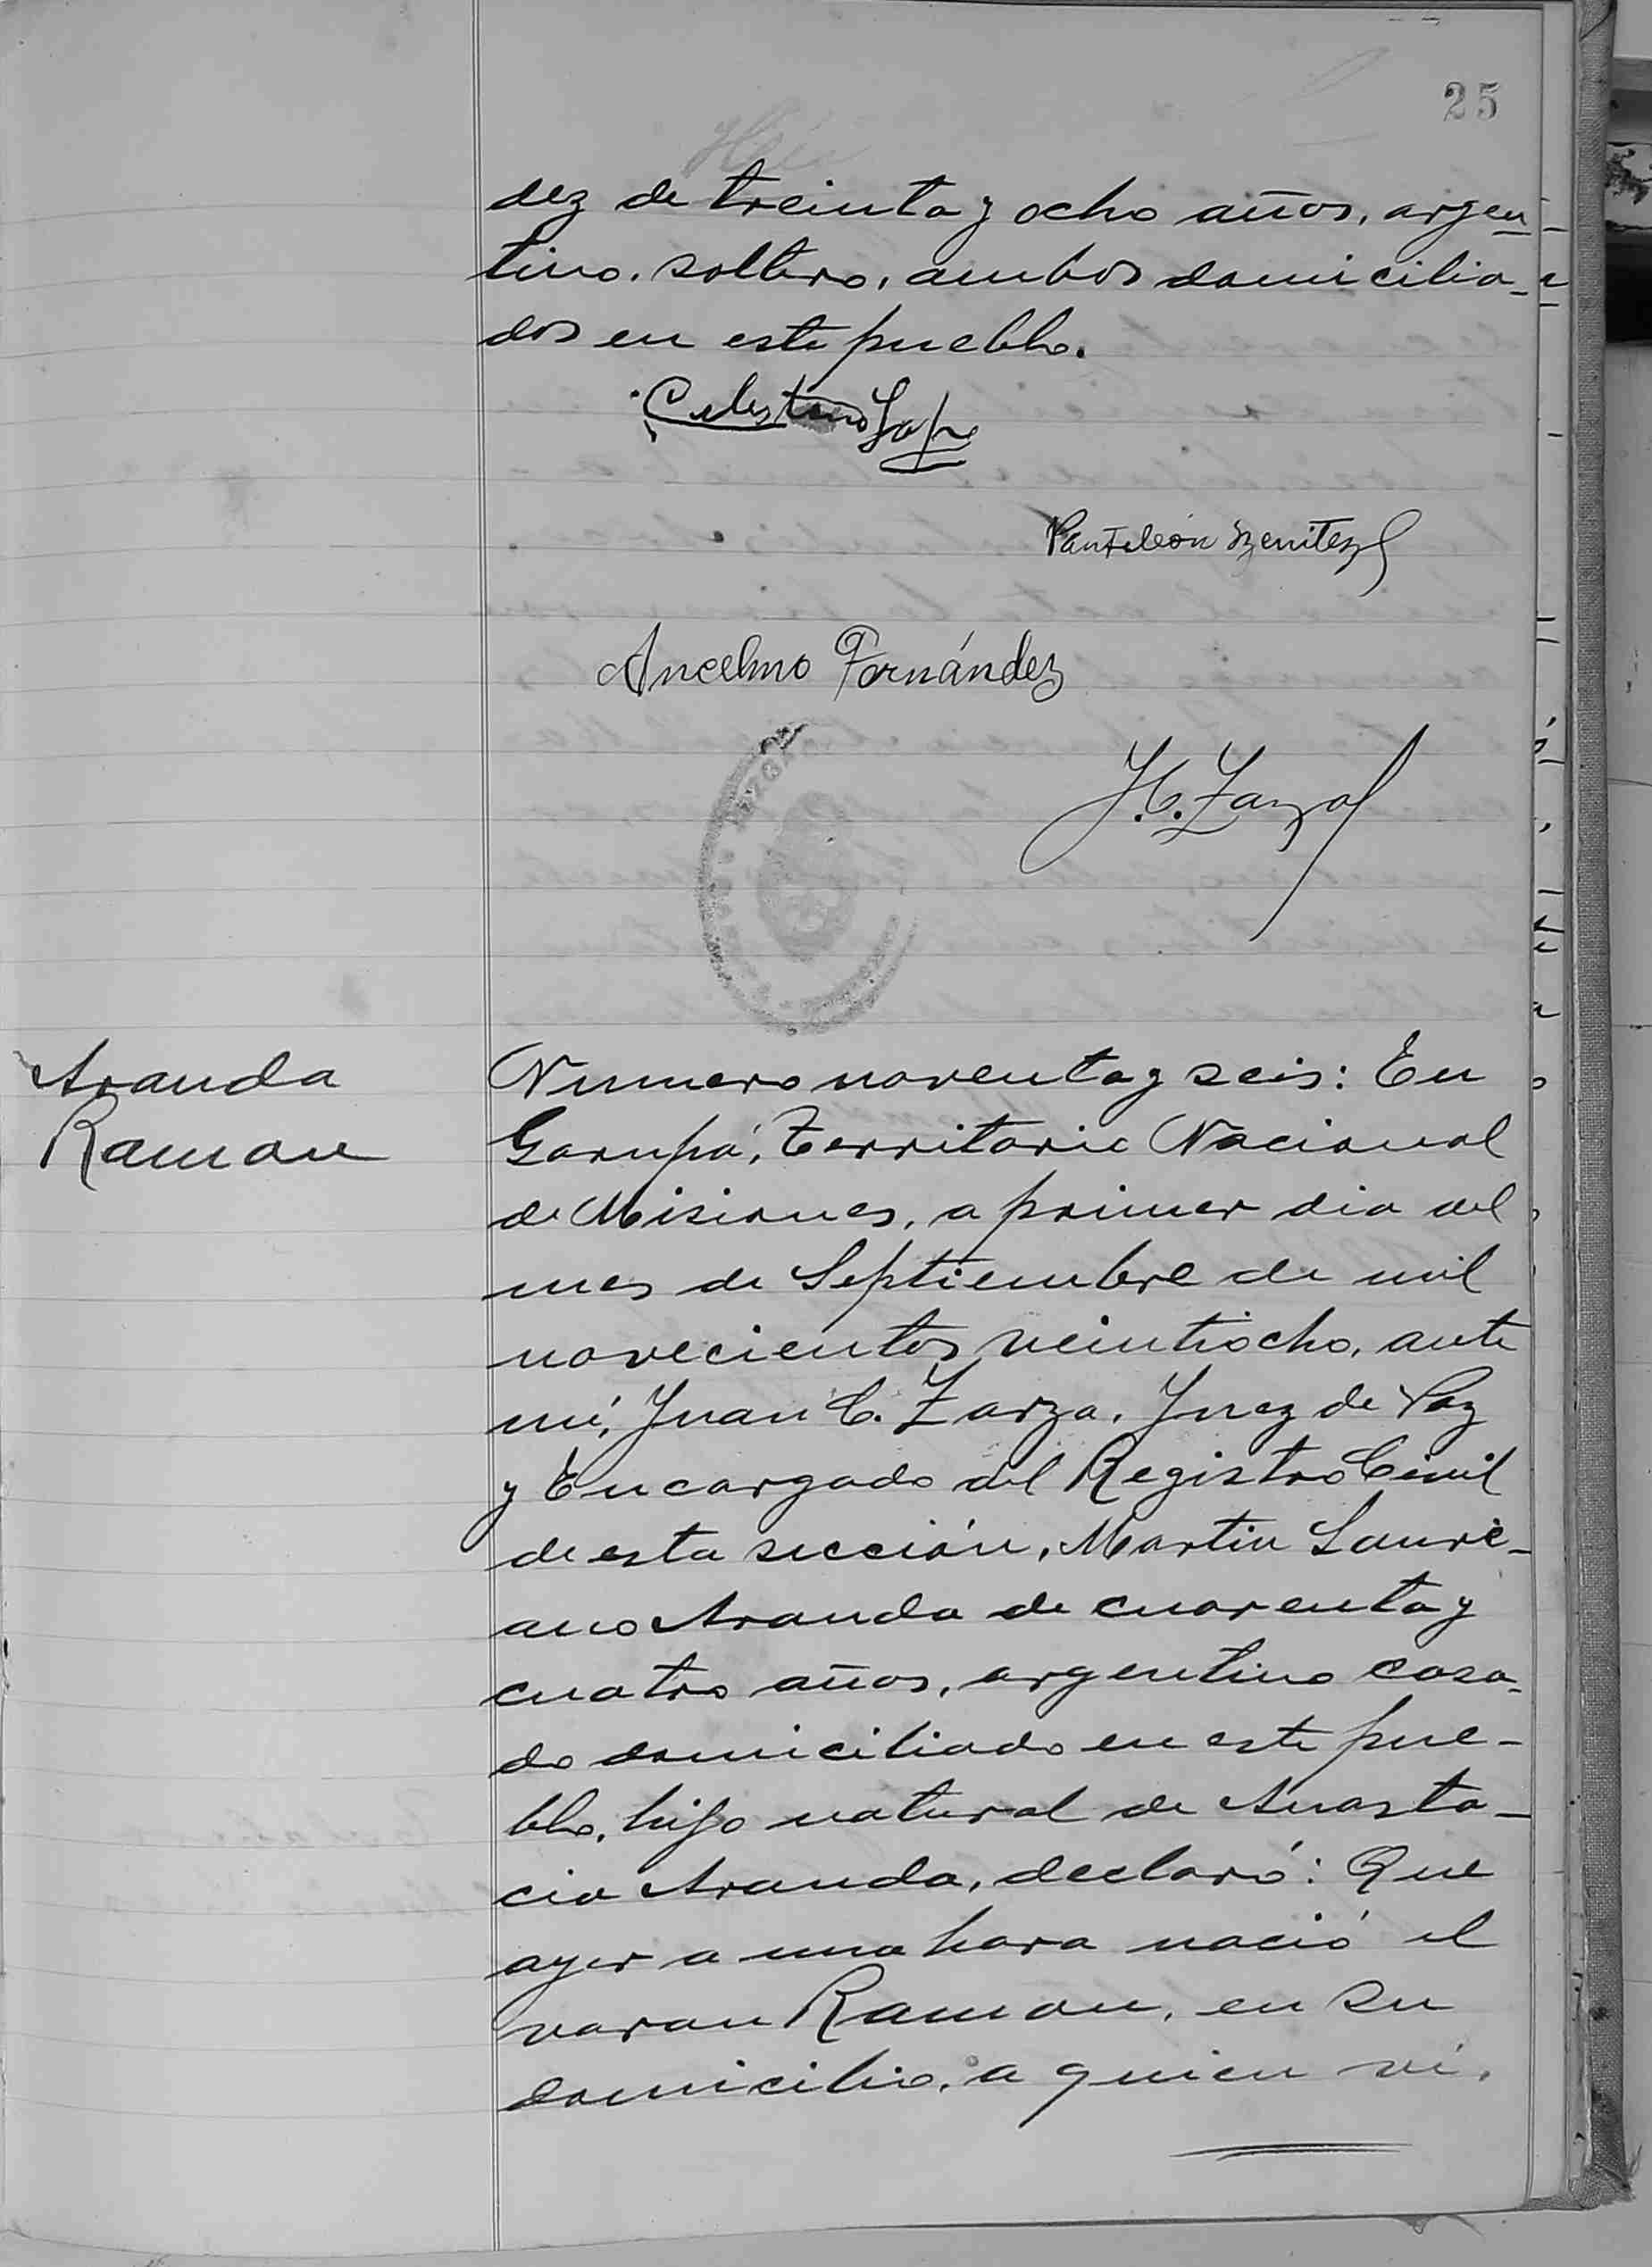 25
dez de treinta y ocho años, argen-
tino, soltero, ambos domicilia-
dos en este pueblo.
Celestino
Pantaleón Benitez
Ancelmo Fernández
J. C. Zarza
Aranda
Ramon
Numero noventa y seis: En
Garupá, Territorio Nacional
de Misiones, a primer dia del
mes de Septiembre de mil
novecientos veintiocho, ante
mí, Juan C. Zarza, Juez de Paz
y Encargado del Registro Civil
de esta sección, Martin Lauri-
ano Aranda de cuarenta y
cuatro años, argentino casa-
do domiciliado en este pue-
blo, hijo natural de Anasta-
cia Aranda, declaró: Que
ayer a una hora nació el
varon Ramon, en su
domicilio, a quien ví,